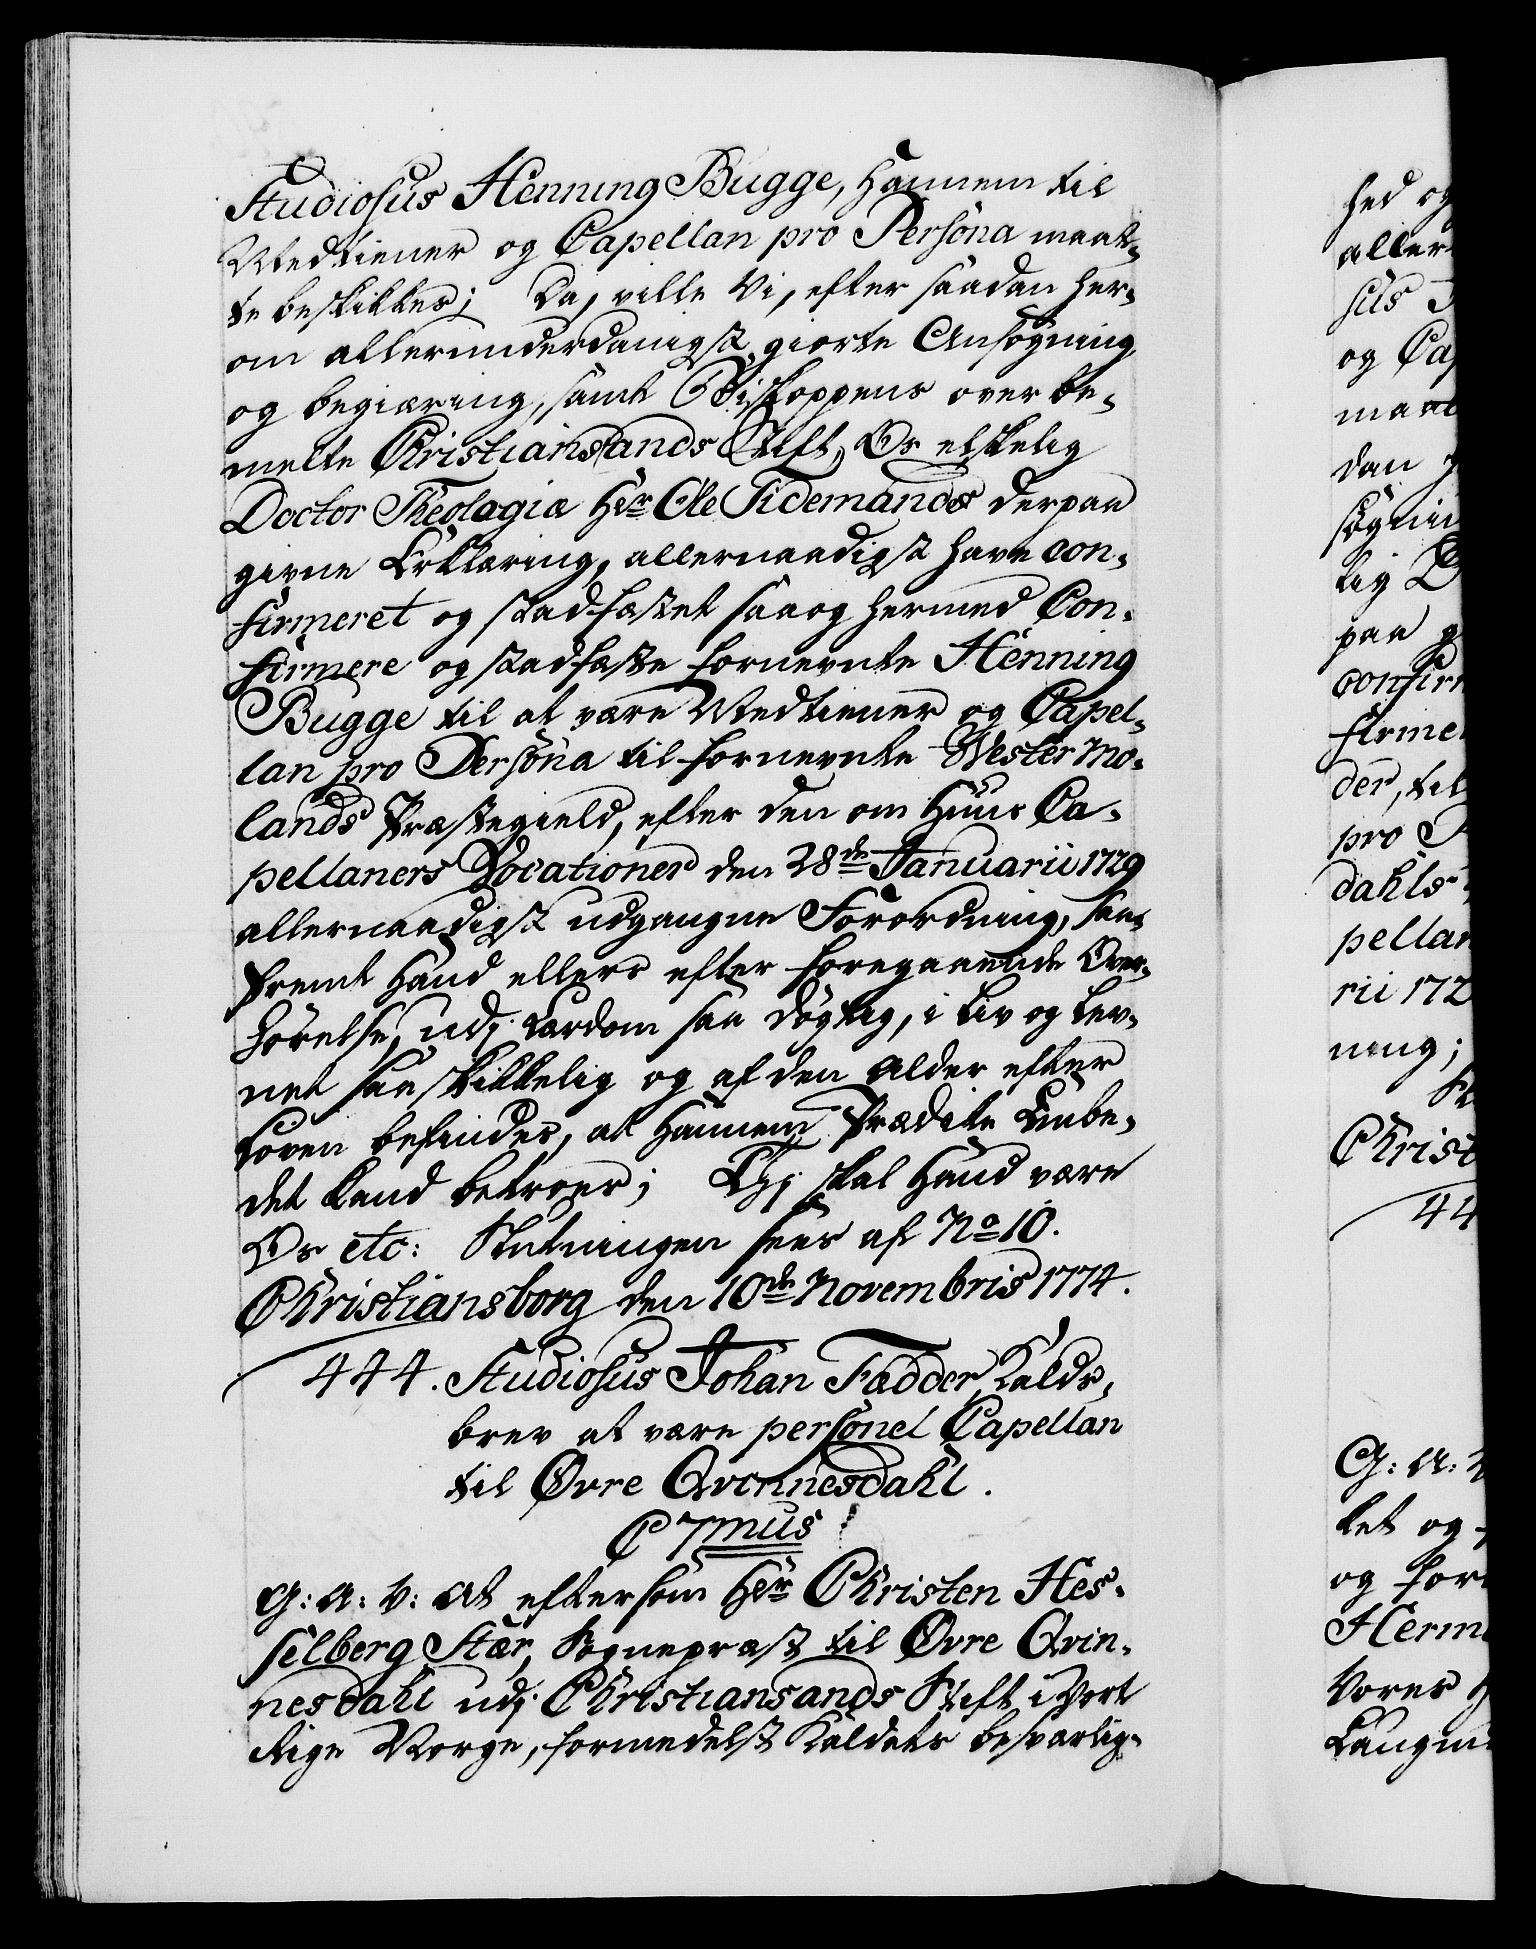 Studiosus Henning Bugge, hannem til
Medtiener og Capellan pro Persona maat-
te beskikkes; Da, ville Vi, efter saadan her-
om allerunderdanigst giorte Ansøgning
og begiæring, samt Biskoppens over be-
melte Christiansands Stift, Os elskelig
Doctor Theologiæ Hr Ole Tidemands derpaa
givne Erklæring, allernaadigst have con-
firmeret og stadfæstet saa og hermed Con-
firmere og stadfæste fornevnte Henning
Bugge til at være Medtiener og Capel-
lan pro Persona til fornevnte Wester Mo-
lands Præstegield, efter den om Huus Ca-
pellaners Vocationer den 28de Januarii 1729
allernaadigst udgangne Forordning, saa-
fremt hand ellers efter foregaaende Over-
hørelse, udj Lærdom saa døgtig, i Liv og Lev-
net saa skikkelig og af den Alder efter
Loven befindes, at hannem Prædike Embe-
det kand betroes; Thj skal hand være
Os etc: Slutningen sees af No 10.
Christiansborg den 10de Novembris 1774.
444. Studiosus Johan Fædder, Kalds-
brev at være personel Capellan
til Øvre Qvinnesdahl.
C 7mus
G: A: V: At eftersom Hr Christen Hes-
selberg Stær, Sognepræst til Øvre Qvin-
nesdahl udj Christiansands Stift i Vort
Rige Norge, formedelst Kaldets besværlig-
hed og
aller-
sus
og Cap
maat
dan
søgnin
lig D
paa g
confirm
firme
der, til
pro P
dahls
pellan
rii 172
ning;
Christ
44
G: A: V
ket og
og for
Herm
Vores
Laugm